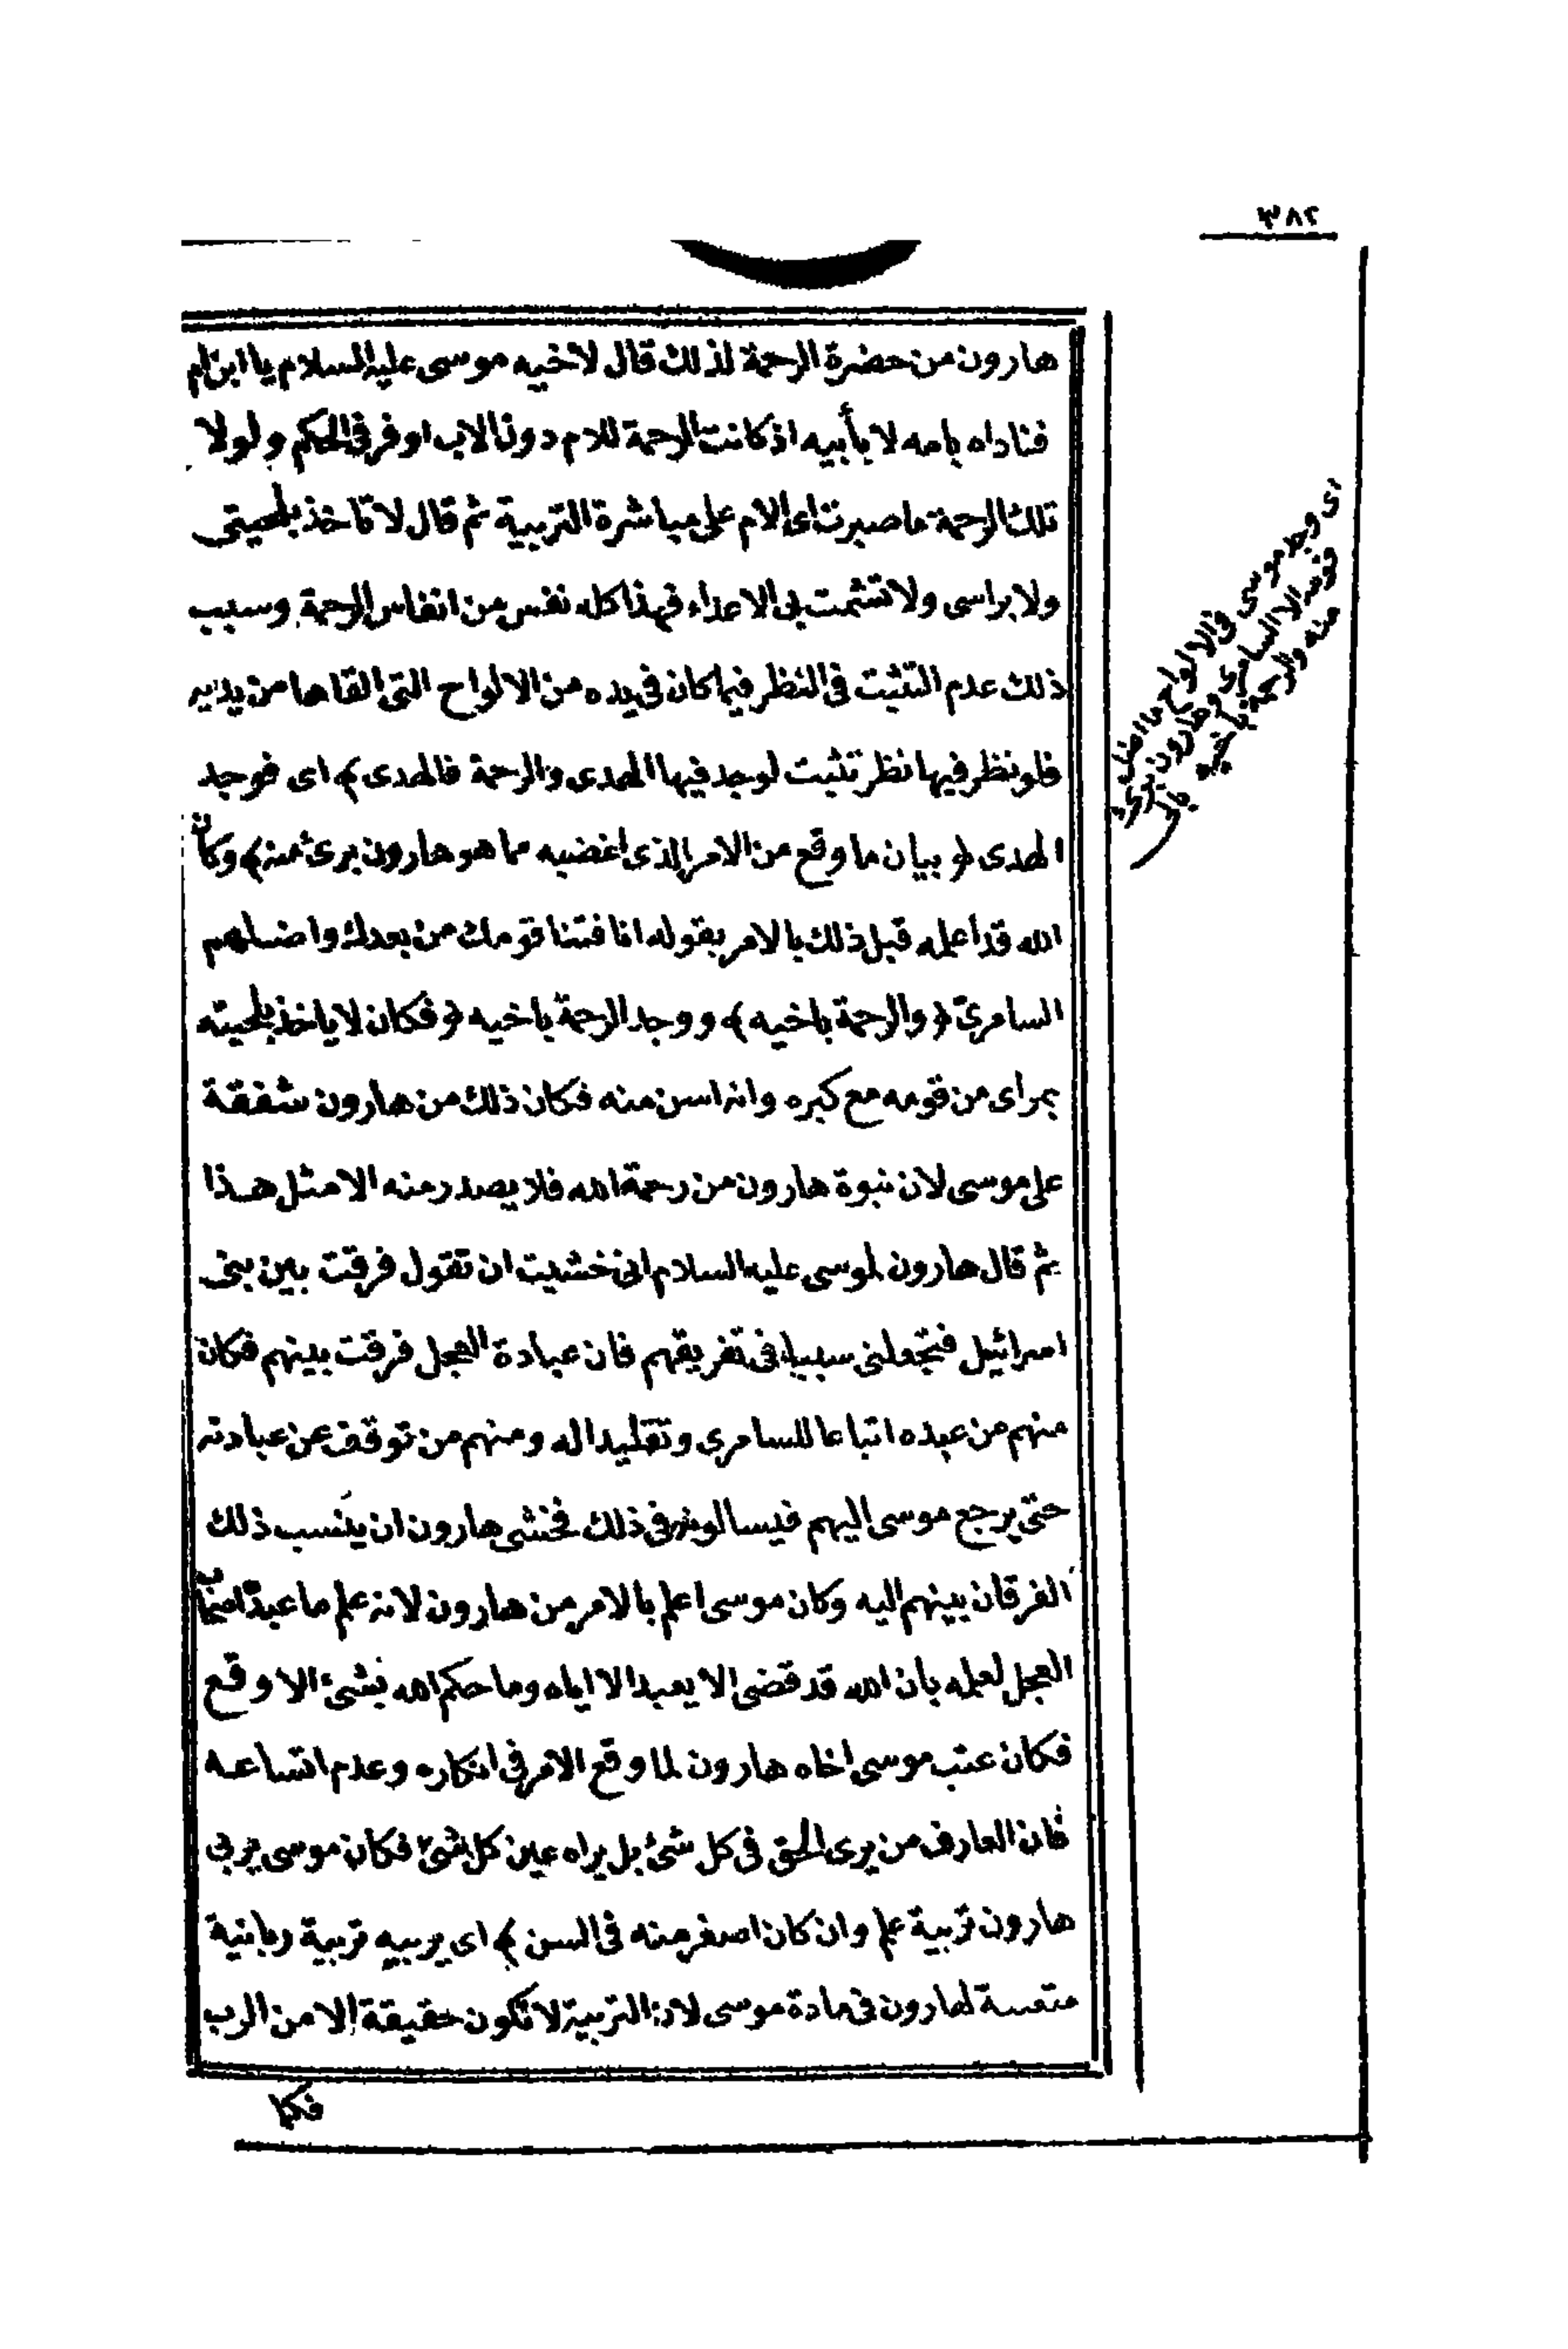 ٣٨٢
هارون من حضرة الرحمة لذلك قال لاخيه موسى عليه السلام يا ابن ام
فناداه بامه لا بأبيه اذ كانت الرحمة للام دون الاب اوفر في الحكم ولولا
تلك الرحمة ما صبرت اى الام على مباشرة التربية ثم قال لا تاخذ بلحيتى
ولا براسى ولا تشمت بى الاعداء فهذا كله نفس من انفاس الرحمة وسبب
ذلك عدم التثبت فى النظر فيما كان فى يده من الالواح التى القاها من يديه
فلو نظر فيها نظر تثبت لوجد فيها الهدى والرحمة فالهدى ﴾ اى فوجد
الهدى ﴿ بيان ما وقع من الامر الذى اغضبه مما هو هارون برئ منه ﴾ وكان
الله قد اعلمه قبل ذلك بالامر بقوله انا فتنا قومك من بعدك واضلهم
السامرى ﴿ والرحمة باخيه ﴾ ووجد الرحمة باخيه ﴿ فكان لا ياخذ بلحيته
بمراى من قومه مع كبره وانه اسن منه فكان ذلك من هارون شفقة
على موسى لان نبوة هارون من رحمة الله فلا يصدر منه الا مثل هذا
ثم قال هارون لموسى عليه السلام انى خشيت ان تقول فرقت بين بنى
اسرائيل فتجعلنى سببا فى تفريقهم فان عبادة العجل فرقت بينهم فكان
منهم من عبده اتباعا للسامرى وتقليدا له ومنهم من توقف عن عبادته
حتى يرجع موسى اليهم فيسالونه فى ذلك فخشى هارون ان ينسب ذلك
الفرقان بينهم اليه وكان موسى اعلم بالامر من هارون لانه علم ما عبده اصحاب
العجل لعلمه بان الله قد قضى الا يعبد الا اياه وما حكم الله بشئ الا وقع
فكان عتب موسى اخاه هارون لما وقع الامر فى انكاره وعدم اتساعه
فان العارف من يرى الحق فى كل شئ بل يراه عين كل شئ فكان موسى يربى
هارون تربية علم وان كان اصغر منه فى السن ﴾ اى يربيه تربية ربانية
لهارون فى مادة موسى لان التربية لا تكون حقيقة الا من الرب
فكا
اى وجد موسى فى الالواح ما اضل
قومه الا السامرى وهارون برئ
منه والرحمة باخيه